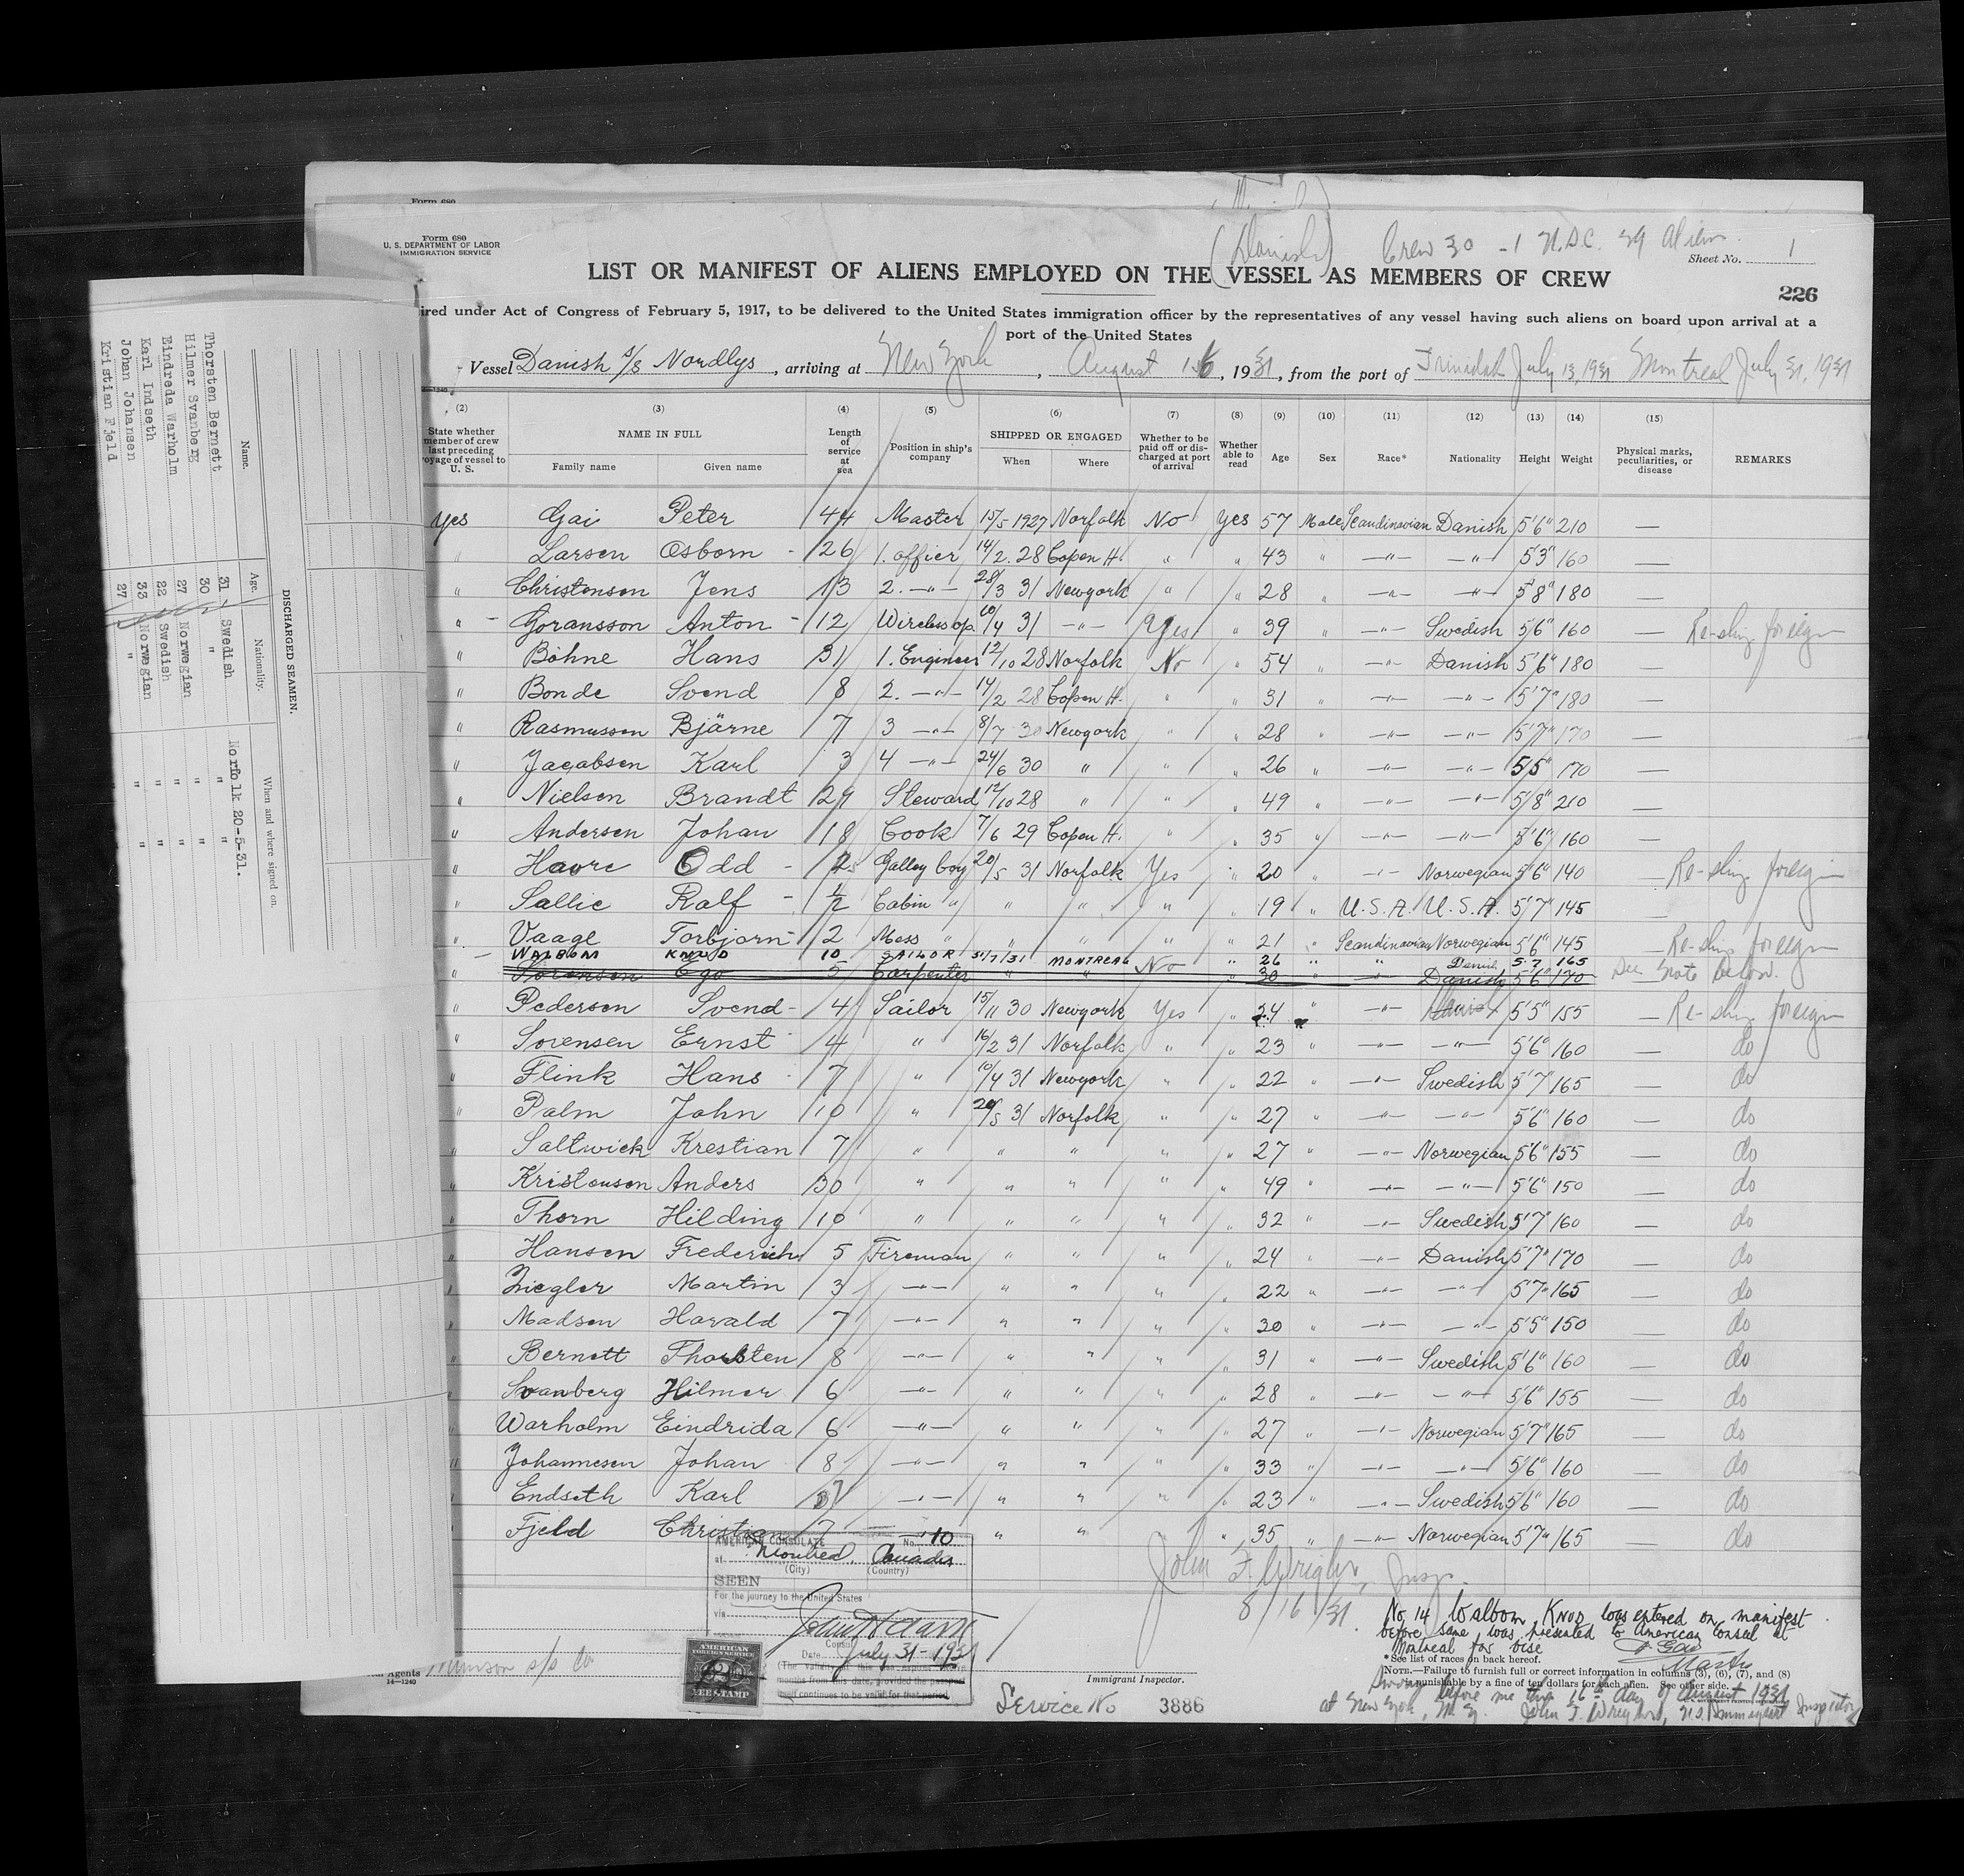 Form 680
Form 680
U. S. DEPARTMENT OF LABOR
IMMIGRATION SERVICE
(Danish) Crew 30 - 1 U.S.C. 29 Aliens.
Sheet No. 1
LIST OR MANIFEST OF ALIENS EMPLOYED ON THE VESSEL AS MEMBERS OF CREW
226
ired under Act of Congress of February 5, 1917, to be delivered to the United States immigration officer by the representatives of any vessel having such aliens on board upon arrival at a
port of the United States
Vessel Danish S/S Nordlys, arriving at New York, August 16, 1931, from the port of Trinidad July 13, 1931 Montreal July 31, 1931
(2) (3) (4) (5) (6) (7) (8) (9) (10) (11) (12) (13) (14) (15)
State whether member of crew last preceding voyage of vessel to U. S.
NAME IN FULL
Family name Given name
Length of service at sea
Position in ship's company
SHIPPED OR ENGAGED
When Where
Whether to be paid off or discharged at port of arrival
Whether able to read
Age Sex Race* Nationality Height Weight
Physical marks, peculiarities, or disease
REMARKS
Yes Gai Peter 44 Master 15/5 1927 Norfolk No Yes 57 Male Scandinavian Danish 5'6" 210 —
" Larsen Osborn - 26 1. officer 14/2. 28 Copen H. " " 43 " —"— —"— 5'3" 160 —
" Christensen Jens 13 2. —"— 28/3 31 Newyork " " 28 " —"— —"— 5'8" 180 —
" - Goransson Anton - 12 Wireless op. 10/4 31 —"— Yes " 39 " —"— Swedish 5'6" 160 — Re-ship foreign
" Böhne Hans 31 1. Engineer 12/10 28 Norfolk No " 54 " —"— Danish 5'6" 180 —
" Bonde Svend 8 2. —"— 14/2 28 Copen H. " " 31 " —"— —"— 5'7" 180 —
" Rasmussen Bjärne 7 3 —"— 8/7 30 Newyork " " 28 —"— —"— 5'7" 170 —
" Jacabsen Karl 3 4 —"— 24/6 30 " " " 26 " —"— —"— 5'5" 170 —
" Nielsen Brandt 29 Steward 12/10 28 " " " 49 " —"— —"— 5'8" 210 —
" Andersen Johan 18 Cook 7/6 29 Copen H. " " 35 " —"— —"— 5'6" 160 —
" Havre Odd - Galley boy 20/5 31 Norfolk Yes " 20 " —"— Norwegian 5'6" 140 — Re-ship foreign
" Sallie Ralf - 1/2 Cabin " " " " " 19 " U.S.A. U.S.A. 5'7" 145
" Vaage Torbjorn - 2 Mess " " " " " 21 " Scandinavian Norwegian 5'6" 145 — Re-ship foreign
- WALBOM KNUD 10 SAILOR 31/7/31 MONTREAL No " 26 " " Danish 5-7 165 See note below.
" Sorensen Ego 5 Carpenter " " " 30 —"— Danish 5'6" 170
" Pedersen Svend - 4 Sailor 15/11 30 Newyork Yes " 24 " —"— 5'5" 155 — Re-ship foreign
" Sorensen Ernst 4 " 16/2 31 Norfolk " " 23 " —"— —"— 5'6" 160 — do
" Flink Hans 7 " 10/4 31 Newyork " " 22 " —"— Swedish 5'7" 165 — do
" Palm John 10 " 20/5 31 Norfolk " " 27 " —"— —"— 5'6" 160 — do
" Saltwick Krestian 7 " " " " " 27 " —"— Norwegian 5'6" 155 — do
" Kristensen Anders 30 " " " " " 49 " —"— —"— 5'6" 150 — do
" Thorn Hilding 10 " " " " " 32 " —"— Swedish 5'7" 160 — do
" Hansen Frederich 5 Fireman " " " " 24 " —"— Danish 5'7" 170 — do
" Ziegler Martin 3 —"— " " " " 22 " —"— —"— 5'7" 165 — do
" Madsen Harald 7 —"— " " " " 30 —"— —"— 5'5" 150 — do
" Bernett Thorsten 8 —"— " " " " 31 " —"— Swedish 5'6" 160 — do
" Svanberg Hilmer 6 —"— " " " " 28 " —"— —"— 5'6" 155 — do
" Warholm Eindrida 6 —"— " " " " 27 " —"— Norwegian 5'7" 165 — do
" Johannesen Johan 8 —"— " " " " 33 " —"— —"— 5'6" 160 — do
" Endseth Karl —"— " " " " 23 " —"— Swedish 5'6" 160 — do
" Fjeld Christian 7 — " " " 35 " —"— Norwegian 5'7" 165 — do
AMERICAN CONSULATE No. 10
at Montreal, Canada
(City) (Country)
SEEN
For the journey to the United States
via
Consul
Date July 31 - 1931
(The validity of this visa expires twelve
months from this date, provided the passport
itself continues to be valid for that period.
AMERICAN
FOREIGN SERVICE
FEE STAMP
John F. Wright, Insp.
8/16/31
No. 14 Walbom, KNUD was entered on manifest
before same was presented to American Consul at
Montreal for vise
P Gai
Master
*See list of races on back hereof.
NOTE.—Failure to furnish full or correct information in columns (3), (6), (7), and (8)
is punishable by a fine of ten dollars for each alien. See other side.
Sworn before me this 16th day of August 1931
at New York, N.Y. John F. Wright, U.S. Immigrant Inspector
Agents Munson s/s Co
14—1240
Immigrant Inspector.
Service No 3886
DISCHARGED SEAMEN.
Name. Age. Nationality. When and where signed on.
Thorsten Bernett 31 Swedish Norfolk 20-5-31.
Hilmer Svanberg 30 " " "
Eindreda Warholm 27 Norwegian " "
Karl Indseth 22 Swedish " "
Johan Johansen 33 Norwegian " "
Kristian Fjeld 27 " " "